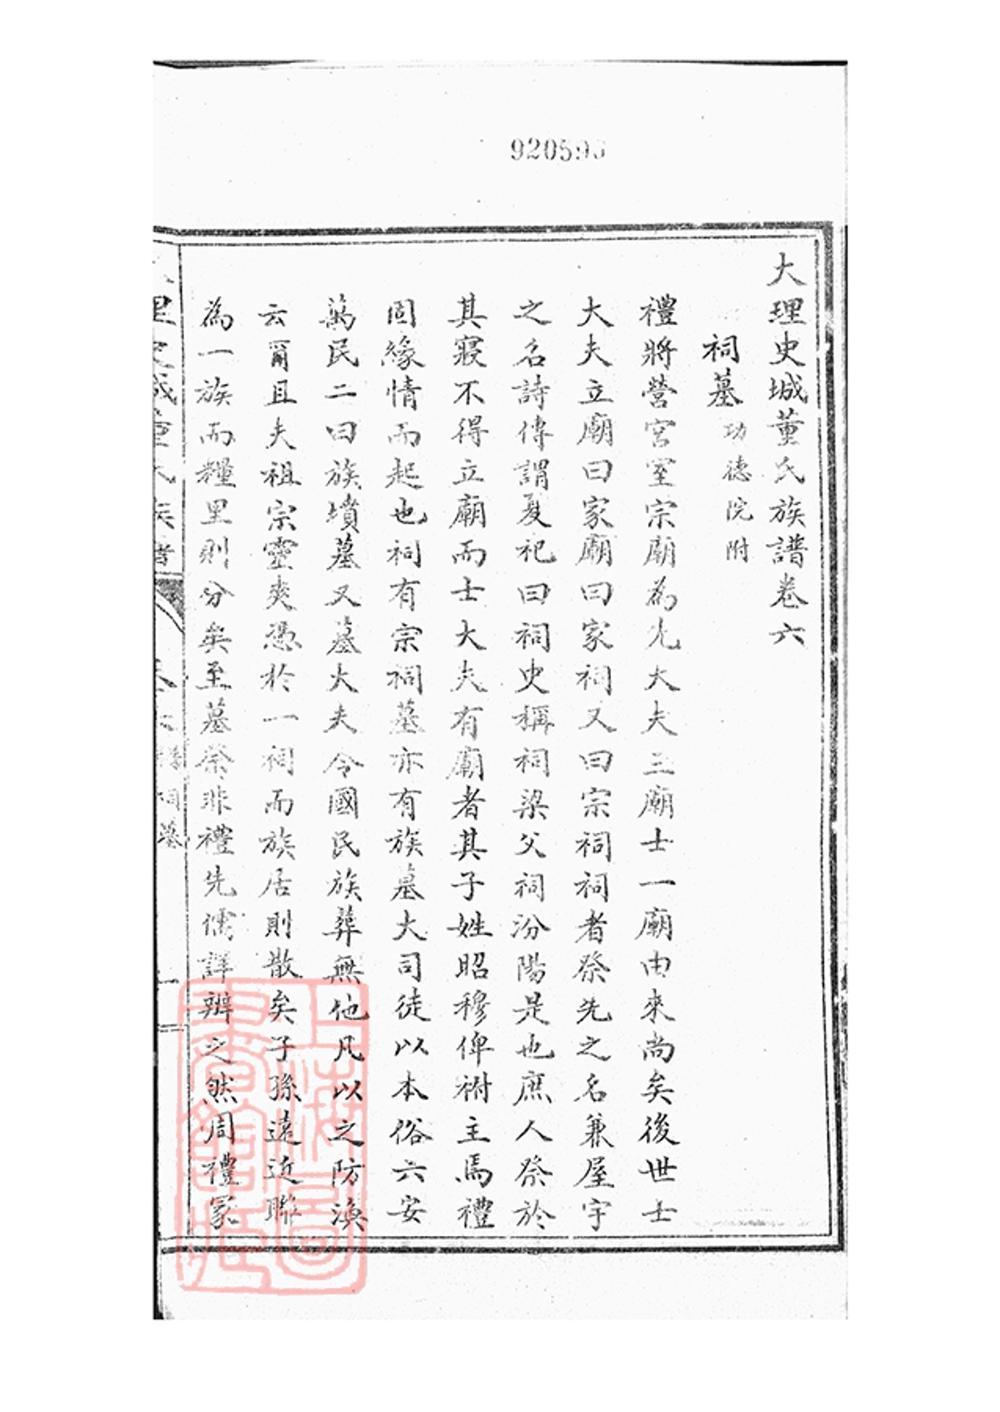 920595
大理史城董氏族譜卷六
祠墓 功德院附
禮將營宮室宗廟為先大夫三廟士一廟由來尚矣後世士
大夫立廟曰家廟曰家祠又曰宗祠祠者祭先之名兼屋宇
之名詩傳謂夏祀曰祠史稱祠梁父祠汾陽是也庶人祭於
其寢不得立廟而士大夫有廟者其子姓昭穆俾祔主焉禮
固緣情而起也祠有宗祠墓亦有族墓大司徒以本俗六安
萬民二曰族墳墓又墓大夫令國民族葬無他凡以之防渙
云爾且夫祖宗靈爽憑於一祠而族居則散矣子孫遠近聯
為一族而糧里則分矣至墓祭非禮先儒詳辨之然周禮冢
里史城董氏族譜
祠墓
上海圖書館藏